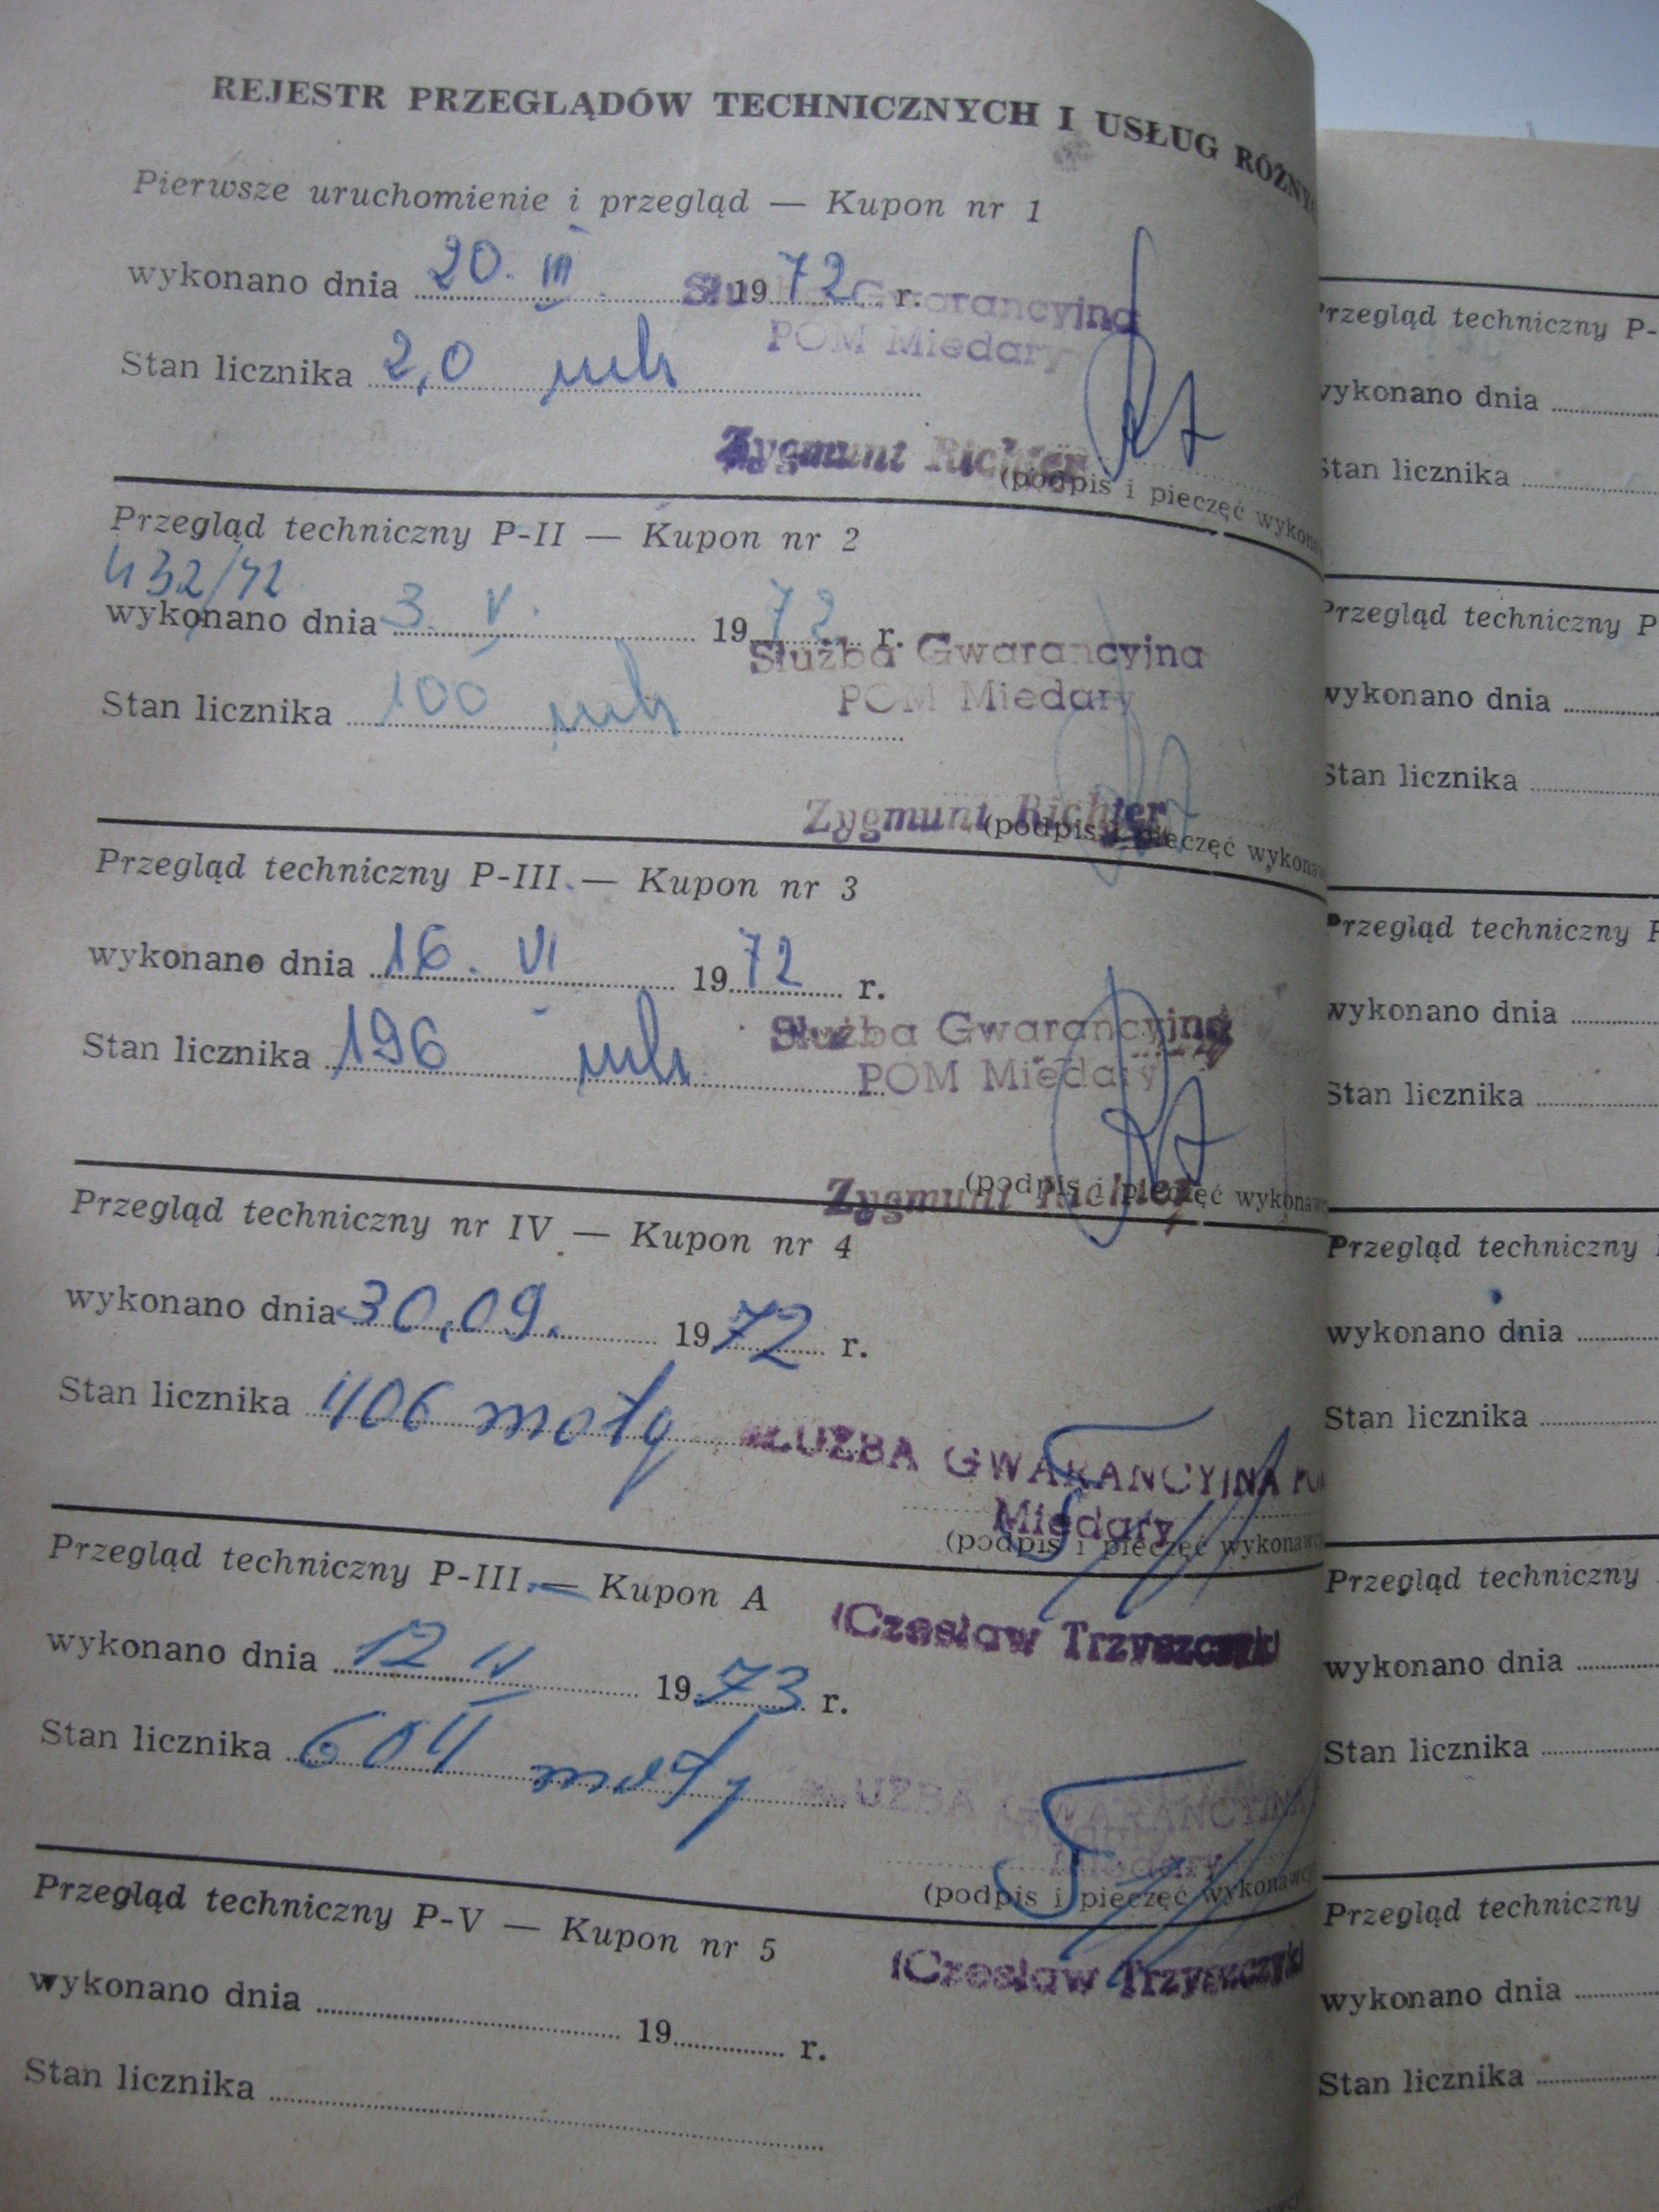 REJESTR PRZEGLĄDÓW TECHNICZNYCH I USŁUG RÓŻNY
Pierwsze uruchomienie i przegląd — Kupon nr 1
wykonano dnia 20. III. 1972 r.
Służba Gwarancyjna
POM Miedary
Stan licznika 2,0 mh
Zygmunt Richter
(podpis i pieczęć wykona
Przegląd techniczny P-II — Kupon nr 2
432/72
wykonano dnia 3. V. 1972 r.
Służba Gwarancyjna
POM Miedary
Stan licznika 100 mh
Zygmunt Richter
(podpis i pieczęć wykonaw
Przegląd techniczny P-III. — Kupon nr 3
wykonano dnia 16. VI 1972 r.
Służba Gwarancyjna
POM Miedary
Stan licznika 196 mh
Zygmunt Richter
(podpis i pieczęć wykonawc
Przegląd techniczny nr IV — Kupon nr 4
wykonano dnia 30,09. 1972 r.
Stan licznika 406 motg
SŁUŻBA GWARANCYJNA POM
Miedary
(podpis i pieczęć wykonawcy
Przegląd techniczny P-III. — Kupon A
(Czesław Trzyszczyk)
wykonano dnia 12 IV 1973 r.
Stan licznika 604 motg
SŁUŻBA GWARANCYJNA
Miedary
(podpis i pieczęć wykonawcy
Przegląd techniczny P-V — Kupon nr 5
(Czesław Trzyszczyk)
wykonano dnia 19 r.
Stan licznika
Przegląd techniczny P-
wykonano dnia
Stan licznika
Przegląd techniczny P
wykonano dnia
Stan licznika
Przegląd techniczny P
wykonano dnia
Stan licznika
Przegląd techniczny
wykonano dnia
Stan licznika
Przegląd techniczny
wykonano dnia
Stan licznika
Przegląd techniczny
wykonano dnia
Stan licznika